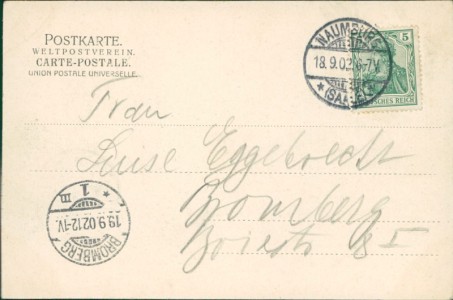 POSTKARTE.
WELTPOSTVEREIN.
CARTE-POSTALE.
UNION POSTALE UNIVERSELLE.
NAUMBURG
18.9.02.6-7V.
* (SAALE) *
5
DEUTSCHES REICH
Frau
Luise
Bromberg
BROMBERG
19.9.02.12-1V.
* 1 m